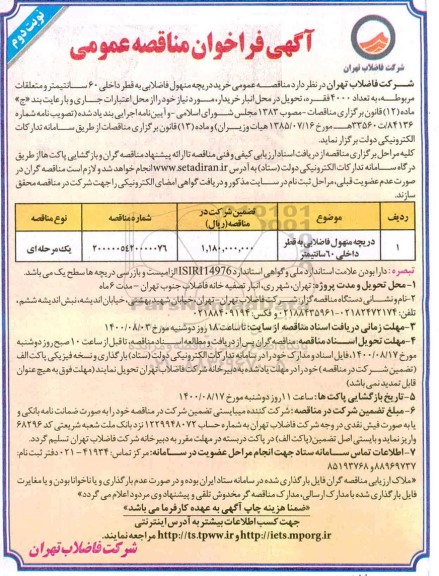 نوبت دوم
آگهی فراخوان مناقصه عمومی
شرکت فاضلاب تهران
شرکت فاضلاب تهران در نظر دارد مناقصه عمومی خرید دریچه منهول فاضلابی به قطر داخلی ۶۰ سانتیمتر و متعلقات
مربوطه، به تعداد ۴۰۰۰ فقره، تحویل در محل انبار خریدار، مورد نیاز خود را از محل اعتبارات جاری و با رعایت بند «ج»
ماده (۱۲) قانون برگزاری مناقصات - مصوب ۱۳۸۳ مجلس شورای اسلامی - و آیین نامه اجرایی بند یاد شده (تصویب نامه شماره
۸۴۱۳۶/ت۳۳۵۶۰هـ مورخ ۱۳۸۵/۰۷/۱۶ هیات وزیران) و ماده (۱۳) قانون برگزاری مناقصات از طریق سامانه تدارکات
الکترونیکی دولت برگزار نماید.
کلیه مراحل برگزاری مناقصه از دریافت اسناد ارزیابی کیفی و فنی مناقصه تا ارائه پیشنهاد مناقصه گران و بازگشایی پاکت ها از طریق
درگاه سامانه تدارکات الکترونیکی دولت (ستاد) به آدرس www.setadiran.ir انجام خواهد شد و لازم است مناقصه گران در
صورت عدم عضویت قبلی، مراحل ثبت نام در سایت مذکور و دریافت گواهی امضای الکترونیکی را جهت شرکت در مناقصه محقق
سازند.
ردیف موضوع تضمین شرکت در مناقصه (ریال) شماره مناقصه نوع مناقصه
۱ دریچه منهول فاضلابی به قطر داخلی ۶۰ سانتیمتر ۱,۱۸۰,۰۰۰,۰۰۰ ۲۰۰۰۰۰۵۴۲۰۰۰۰۷۶ یک مرحله ای
تبصره: دارا بودن علامت استاندارد ملی و گواهی استاندارد ISIRI14976 الزامیست و بازرسی دریچه ها سطح یک می باشد.
۱- محل تحویل و مدت پروژه: تهران، شهر ری، انبار تصفیه خانه فاضلاب جنوب تهران - مدت ۶ ماه
۲- نام و نشانی دستگاه مناقصه گزار: شرکت فاضلاب تهران - تهران، خیابان شهید بهشتی، خیابان اندیشه، نبش اندیشه ششم،
تلفن: ۰۲۱۸۴۴۷۲۱۷۴ - ۰۲۱۸۸۴۳۵۹۶۱ و فکس: ۰۲۱۸۸۴۰۹۱۹۴
۳- مهلت زمانی دریافت اسناد مناقصه از سایت: تا ساعت ۱۸ روز دوشنبه مورخ ۱۴۰۰/۰۸/۰۳
۴- مهلت تحویل اسناد مناقصه: مناقصه گران پس از دریافت و مطالعه اسناد مناقصه، تا قبل از ساعت ۱۰ صبح روز دوشنبه
مورخ ۱۴۰۰/۰۸/۱۷، فایل اسناد و مدارک خود را در سامانه تدارکات الکترونیکی دولت (ستاد) بارگذاری و نسخه فیزیکی پاکت الف
(تضمین شرکت در مناقصه) خود را در مهلت یاد شده به دبیرخانه شرکت فاضلاب تهران تحویل نمایند (مهلت فوق به هیچ عنوان
قابل تمدید نمی باشد)
۵- تاریخ بازگشایی پاکت ها: ساعت ۱۱ روز دوشنبه مورخ ۱۴۰۰/۰۸/۱۷
۶- مبلغ تضمین شرکت در مناقصه: شرکت کننده میبایستی تضمین شرکت در مناقصه خود را به صورت ضمانت نامه بانکی و
یا به صورت فیش نقدی در وجه شرکت فاضلاب تهران به شماره حساب ۱۲۲۹۹۴۸۰۷۲ نزد بانک ملت شعبه شریعتی کد ۶۸۲۹۶
واریز نماید و بایستی اصل تضمین (پاکت الف) در پاکت دربسته در مهلت مقرر به دبیرخانه شرکت فاضلاب تهران تسلیم گردد.
۷- اطلاعات تماس سامانه ستاد جهت انجام مراحل عضویت در سامانه: مرکز تماس: ۴۱۹۳۴ - ۰۲۱ دفتر ثبت نام:
۸۸۹۶۹۷۳۷ و ۸۵۱۹۳۷۶۸
«ملاک ارزیابی مناقصه گران فایل بارگذاری شده در سامانه ستاد ایران بوده و در صورت عدم بارگذاری و یا ناخوانا بودن و یا مغایرت
فایل بارگذاری شده با مدارک ارسالی، مدارک مناقصه گر مخدوش تلقی و پیشنهاد وی مردود اعلام می گردد»
«ضمنا هزینه چاپ آگهی به عهده کارفرما می باشد»
جهت کسب اطلاعات بیشتر به آدرس اینترنتی
http://iets.mporg.ir و http://ts.tpww.ir مراجعه نمایند.
شرکت فاضلاب تهران